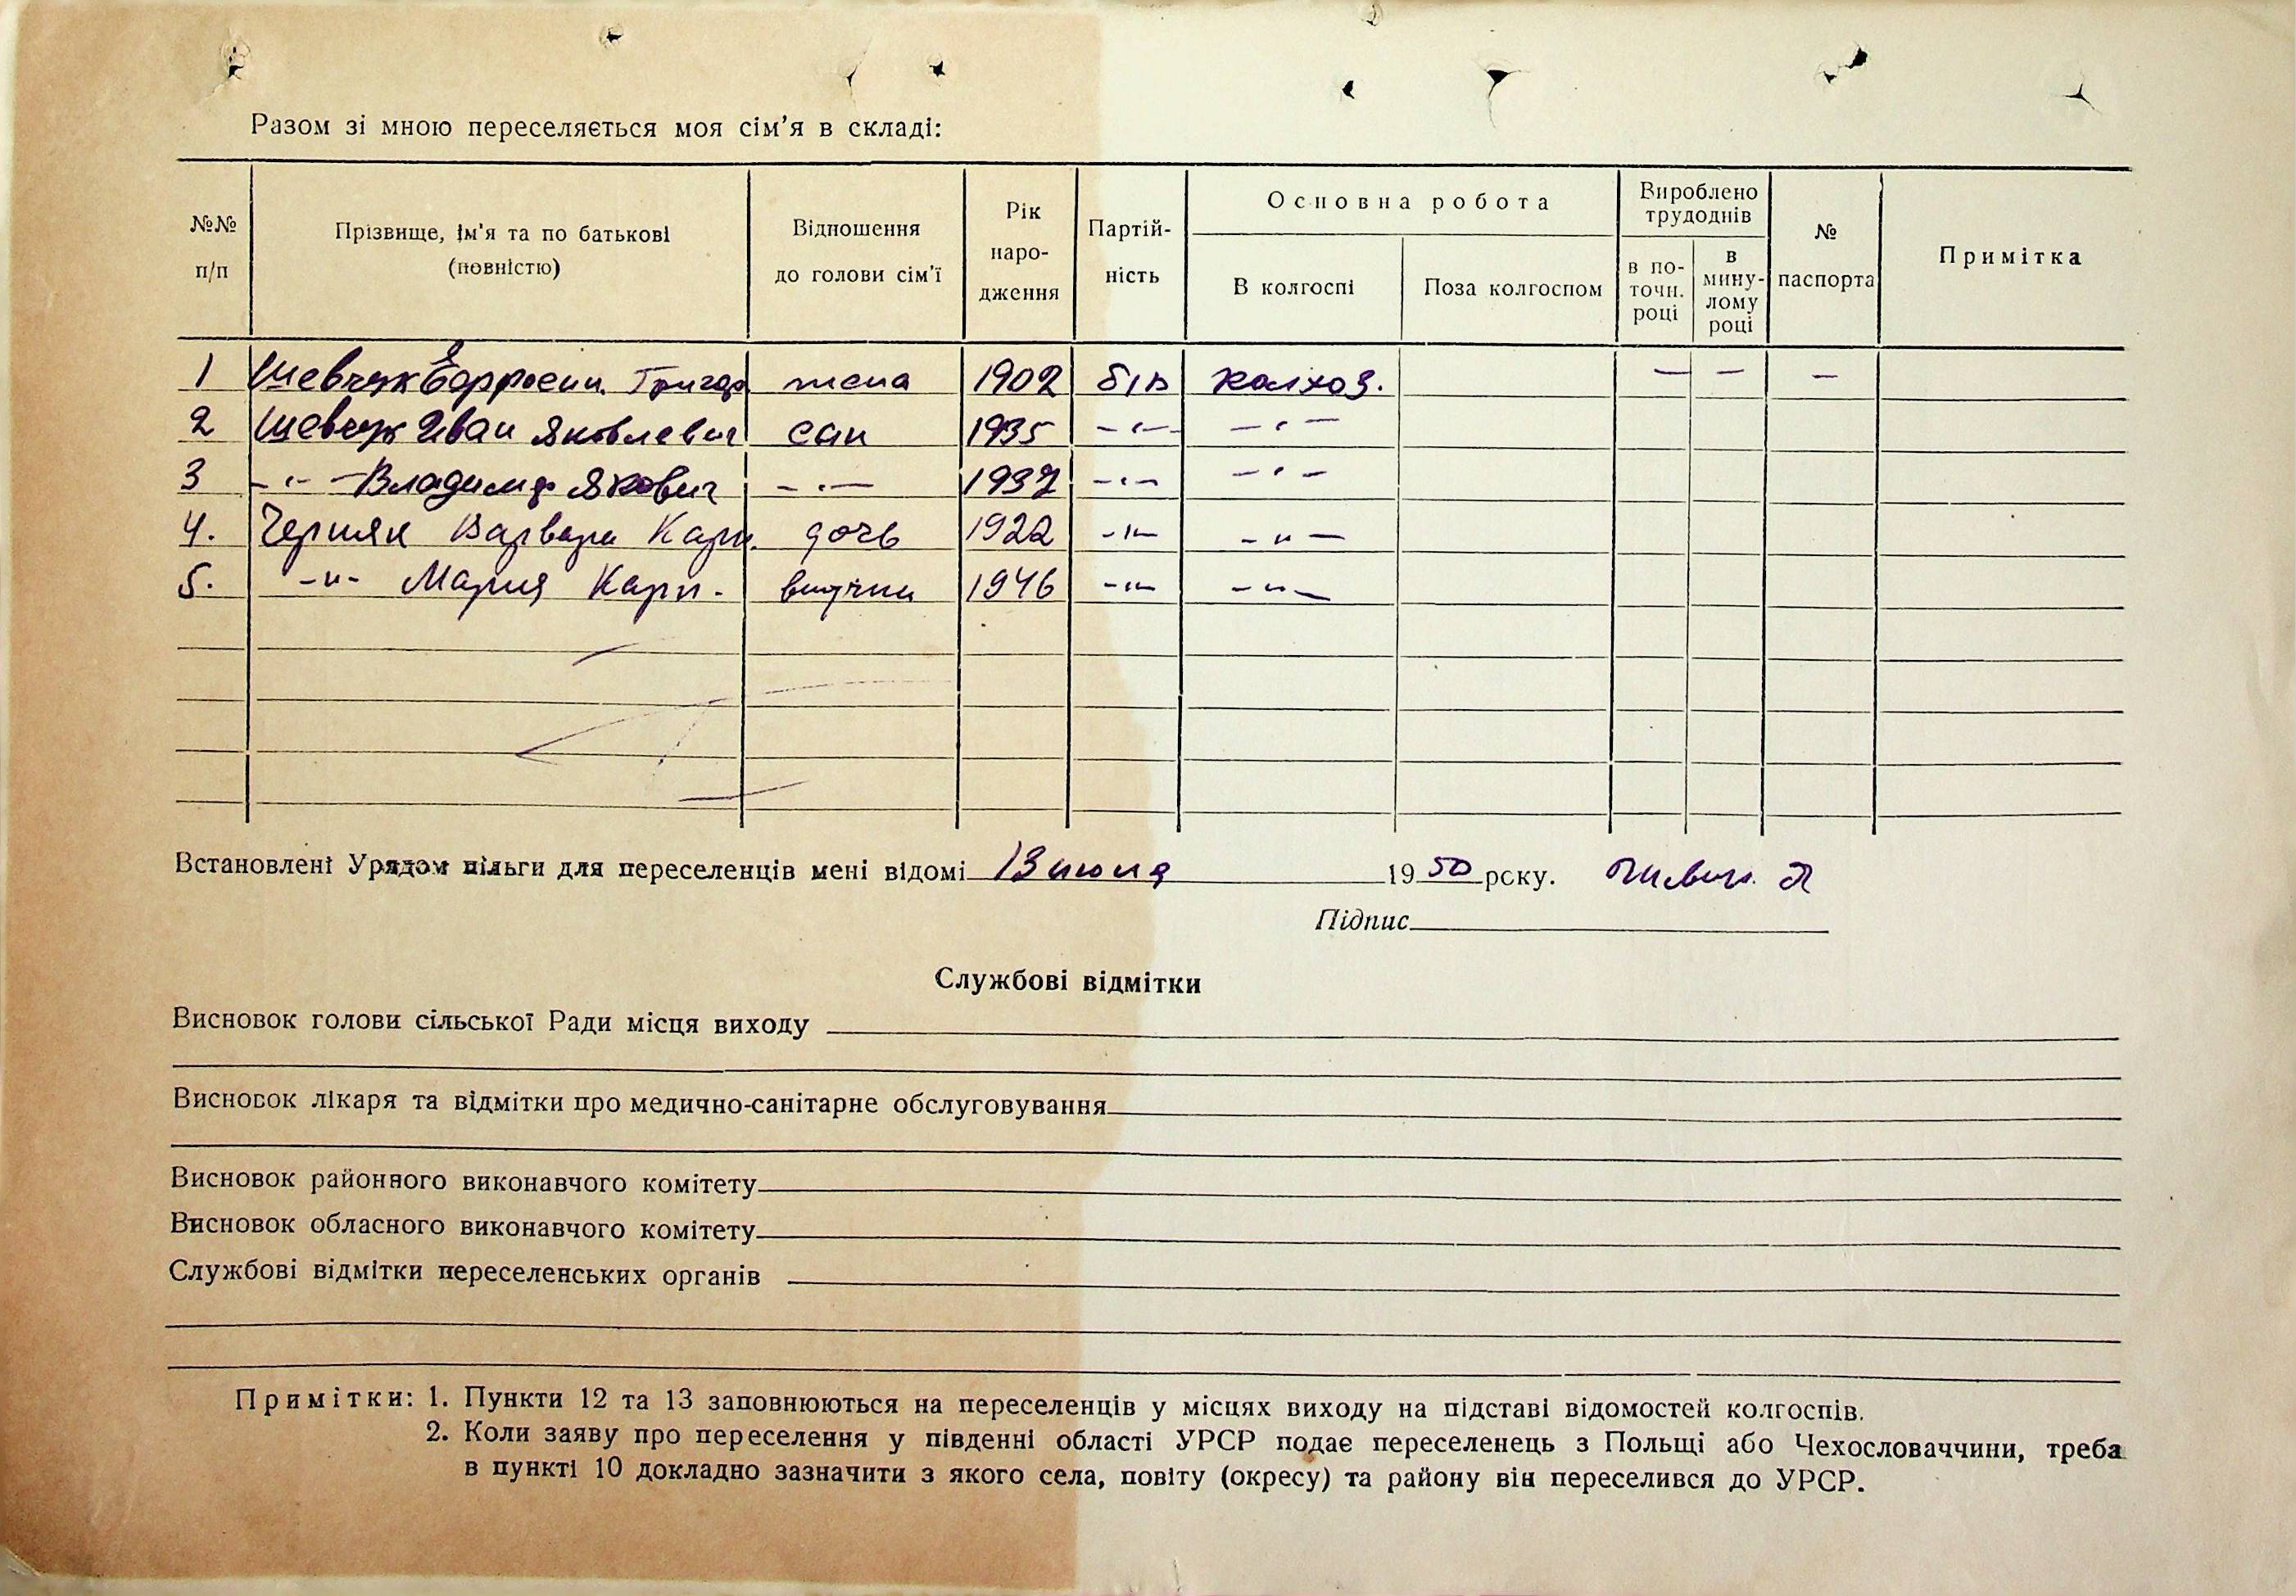 Разом зі мною переселяється моя сім’я в складі:
№№ п/п
Прізвище, ім’я та по батькові (повністю)
Відношення до голови сім’ї
Рік народження
Партійність
Основна робота
В колгоспі
Поза колгоспом
Вироблено трудоднів
в поточн. році
в минулому році
№ паспорта
Примітка
1 Шевчук Григор жена 1902 б/п колхоз. — — —
2 Шевчук Иван Яковлевич сын 1935 -"- -"-
3 -"- Владимир Якович -"- 1937 -"- -"-
4. Черняк Варвара Карп. дочь 1922 -"- -"-
5. -"- Мария Карп. внучка 1946 -"- -"-
Встановлені Урядом пільги для переселенців мені відомі 13 июня 1950 року.
Підпис
Службові відмітки
Висновок голови сільської Ради місця виходу
Висновок лікаря та відмітки про медично-санітарне обслуговування
Висновок районного виконавчого комітету
Висновок обласного виконавчого комітету
Службові відмітки переселенських органів
Примітки: 1. Пункти 12 та 13 заповнюються на переселенців у місцях виходу на підставі відомостей колгоспів.
2. Коли заяву про переселення у південні області УРСР подає переселенець з Польщі або Чехословаччини, треба
в пункті 10 докладно зазначити з якого села, повіту (окресу) та району він переселився до УРСР.